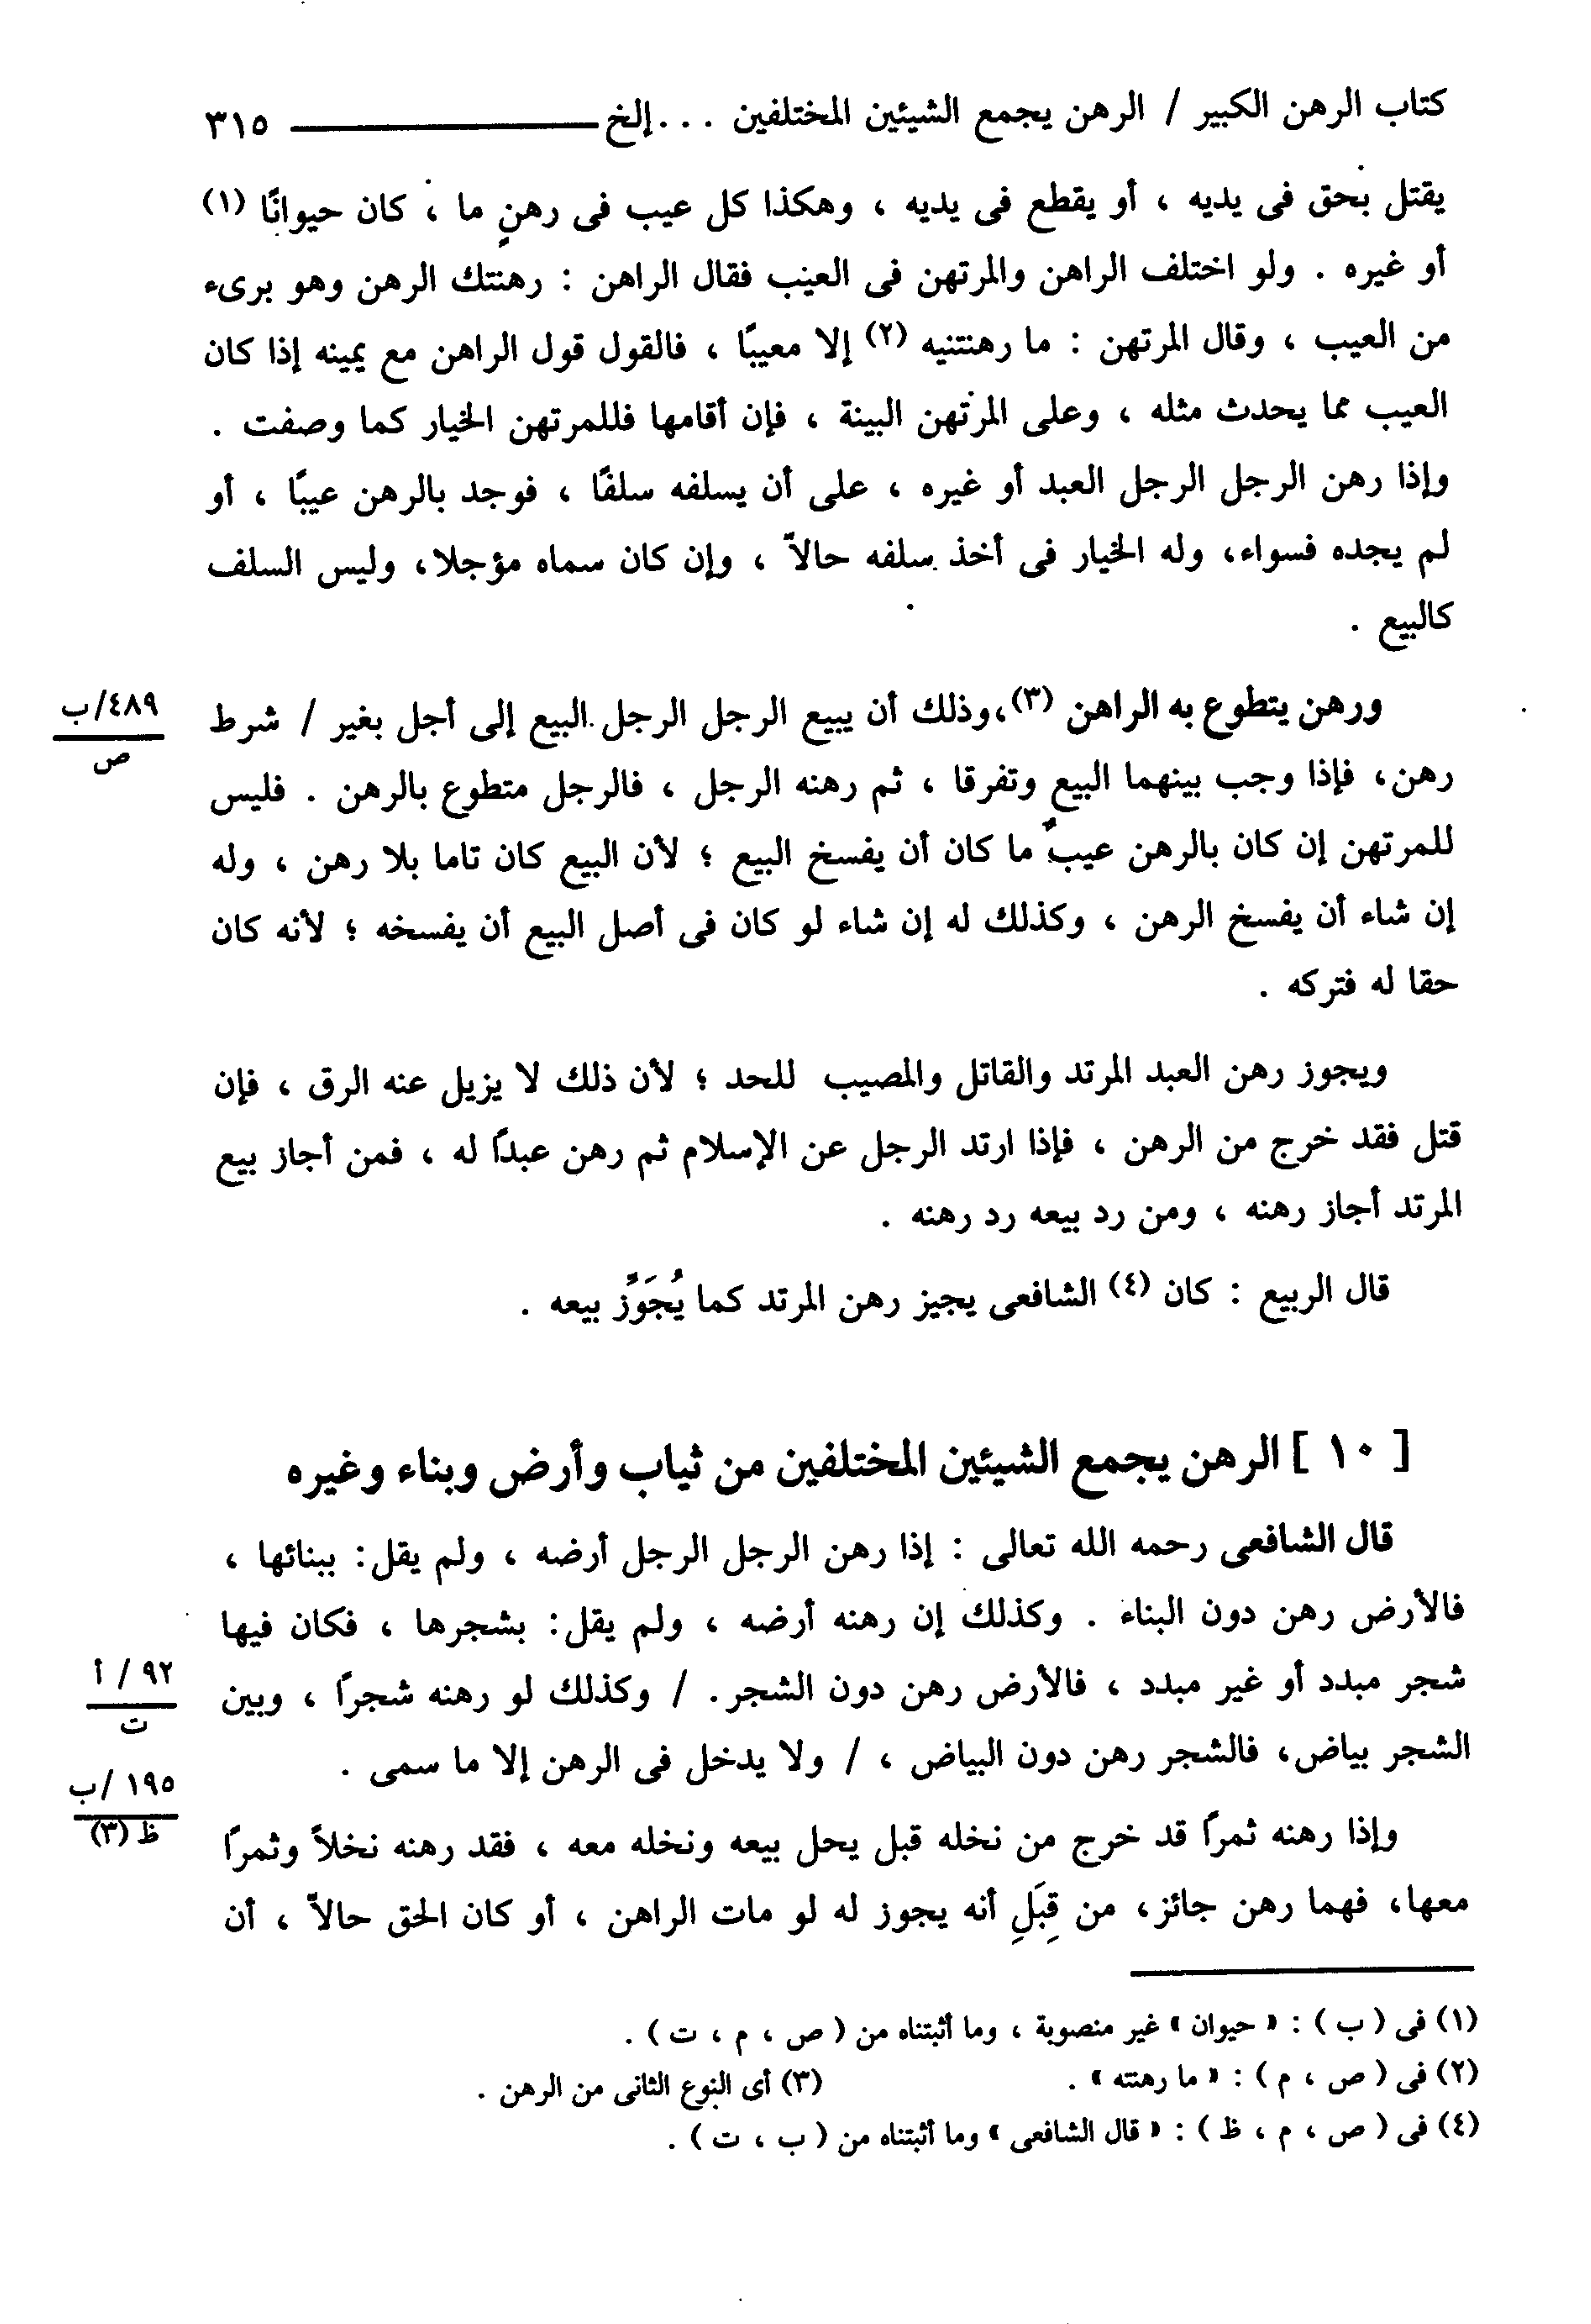 كتاب الرهن الكبير / الرهن يجمع الشيئين المختلفين . . . إلخ ــــــــــــ ٣١٥
يقتل بحق فى يديه ، أو يقطع فى يديه ، وهكذا كل عيب فى رهنٍ ما ، كان حيوانًا (١)
أو غيره . ولو اختلف الراهن والمرتهن فى العيب فقال الراهن : رهنتك الرهن وهو برىء
من العيب ، وقال المرتهن : ما رهنتنيه (٢) إلا معيبًا ، فالقول قول الراهن مع يمينه إذا كان
العيب مما يحدث مثله ، وعلى المرتهن البينة ، فإن أقامها فللمرتهن الخيار كما وصفت .
وإذا رهن الرجل الرجل العبد أو غيره ، على أن يسلفه سلفًا ، فوجد بالرهن عيبًا ، أو
لم يجده فسواء، وله الخيار فى أخذ سلفه حالاّ ، وإن كان سماه مؤجلا، وليس السلف
كالبيع .
ورهن يتطوع به الراهن (٣)،وذلك أن يبيع الرجل الرجل البيع إلى أجل بغير / شرط
٤٨٩/ب
ص
رهن، فإذا وجب بينهما البيع وتفرقا ، ثم رهنه الرجل ، فالرجل متطوع بالرهن . فليس
للمرتهن إن كان بالرهن عيبٌ ما كان أن يفسخ البيع ؛ لأن البيع كان تاما بلا رهن ، وله
إن شاء أن يفسخ الرهن ، وكذلك له إن شاء لو كان فى أصل البيع أن يفسخه ؛ لأنه كان
حقا له فتركه .
ويجوز رهن العبد المرتد والقاتل والمصيب للحد ؛ لأن ذلك لا يزيل عنه الرق ، فإن
قتل فقد خرج من الرهن ، فإذا ارتد الرجل عن الإسلام ثم رهن عبدًا له ، فمن أجاز بيع
المرتد أجاز رهنه ، ومن رد بيعه رد رهنه .
قال الربيع : كان (٤) الشافعى يجيز رهن المرتد كما يُجَوِّز بيعه .
[ ١٠ ] الرهن يجمع الشيئين المختلفين من ثياب وأرض وبناء وغيره
قال الشافعى رحمه الله تعالى : إذا رهن الرجل الرجل أرضه ، ولم يقل: ببنائها ،
فالأرض رهن دون البناء . وكذلك إن رهنه أرضه ، ولم يقل: بشجرها ، فكان فيها
شجر مبدد أو غير مبدد ، فالأرض رهن دون الشجر. / وكذلك لو رهنه شجرًا ، وبين
٩٢ / أ
ت
الشجر بياض، فالشجر رهن دون البياض ، / ولا يدخل فى الرهن إلا ما سمى .
١٩٥ /ب
ظ (٣)
وإذا رهنه ثمرًا قد خرج من نخله قبل يحل بيعه ونخله معه ، فقد رهنه نخلاً وثمرًا
معها، فهما رهن جائز، من قِبَلِ أنه يجوز له لو مات الراهن ، أو كان الحق حالاّ ، أن
(١) فى ( ب ) : « حيوان » غير منصوبة ، وما أثبتناه من ( ص ، م ، ت ) .
(٢) فى ( ص ، م ) : « ما رهنته » . (٣) أى النوع الثانى من الرهن .
(٤) فى ( ص ، م ، ظ ) : « قال الشافعى » وما أثبتناه من ( ب ، ت ) .